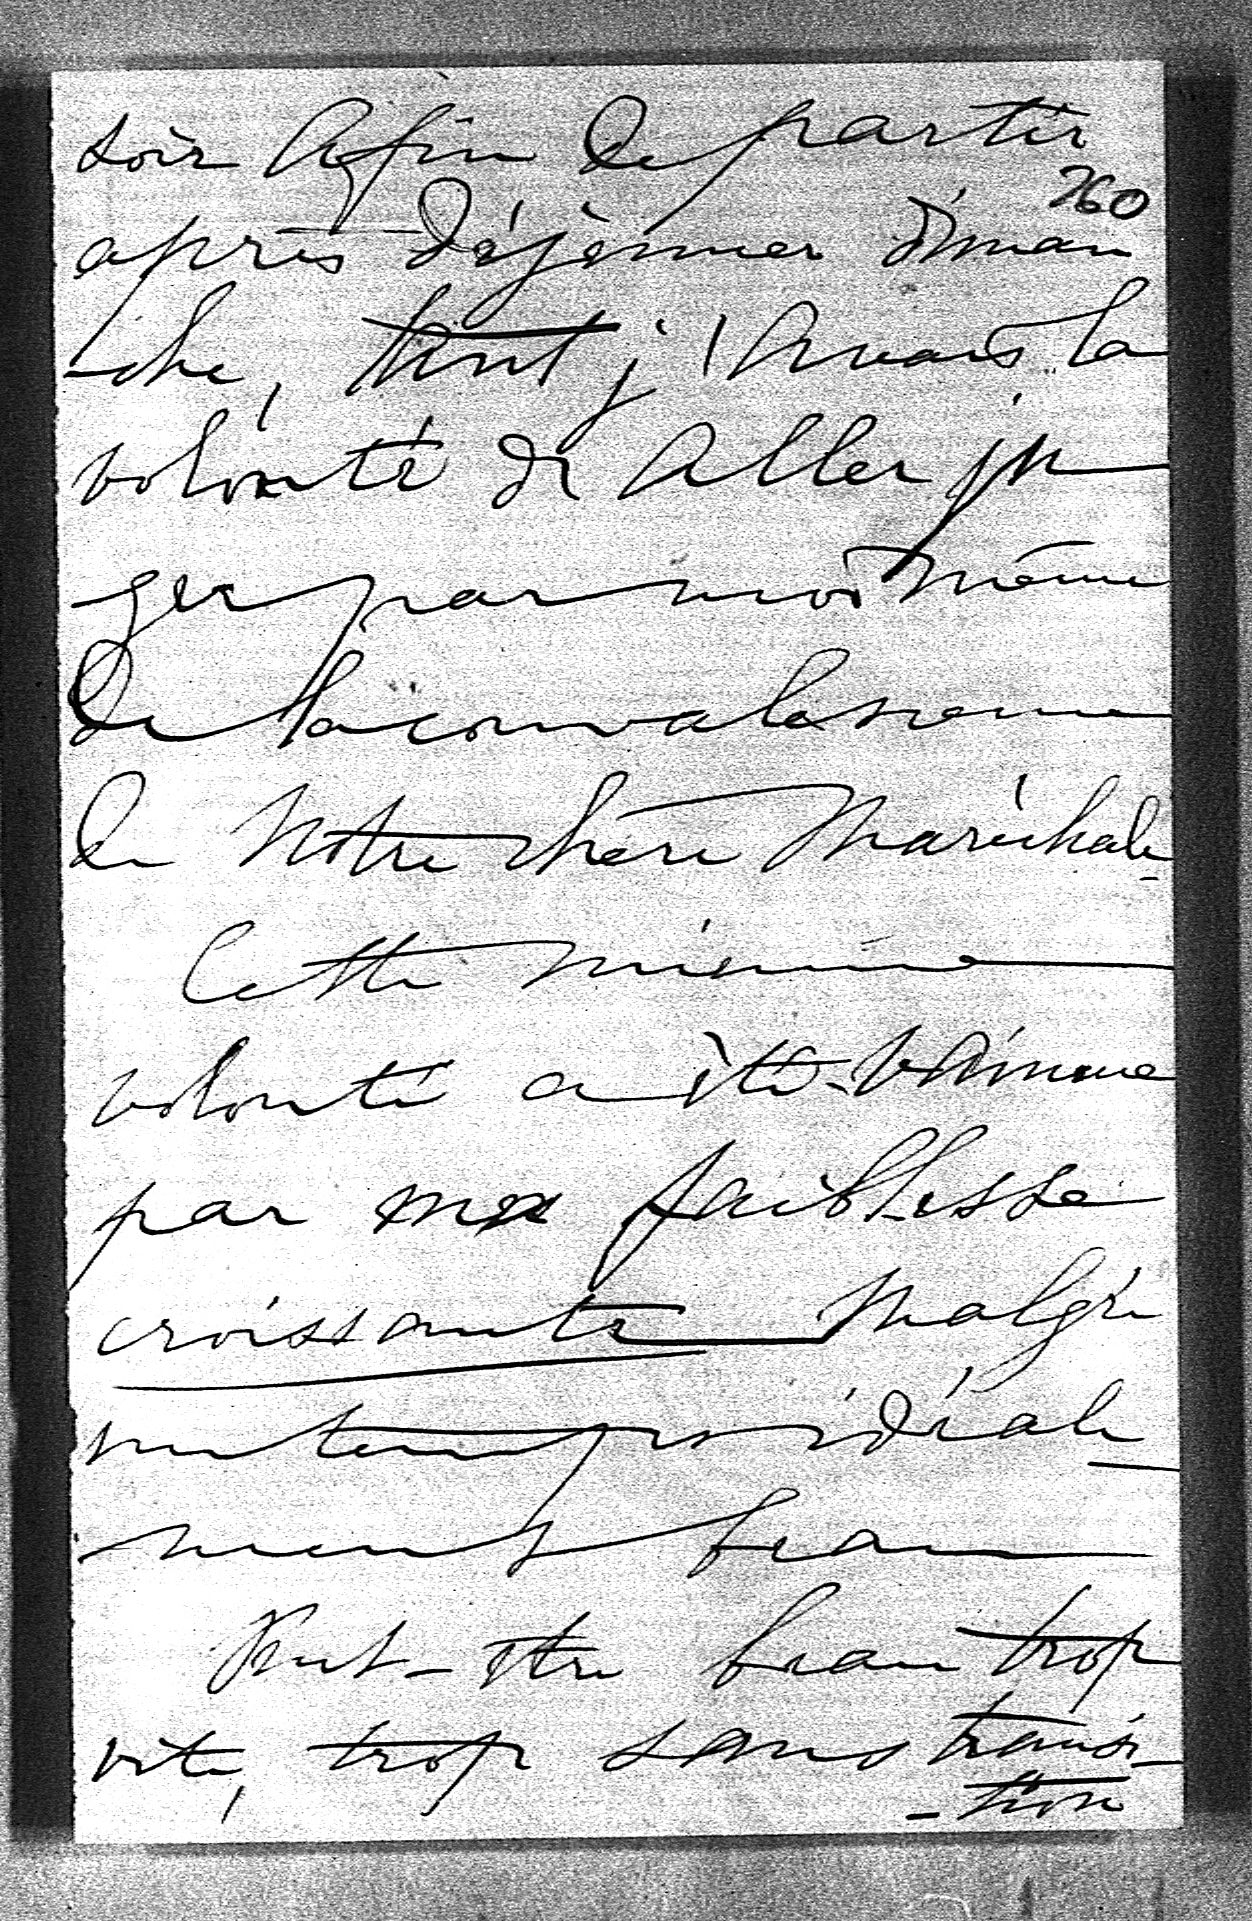 soir Afin de partir
260
après déjeuner diman
-che, tant j'Avais la
volonté de Aller ju
ger par moi même
de la convalescence
de Notre chère Maréchale
Cette mienne
volonté a été vaincue
par ma faiblesse
croissante Malgré
un temps idéale_
ment beau
Peut-être beau trop
vite, trop sans transi_
-tion